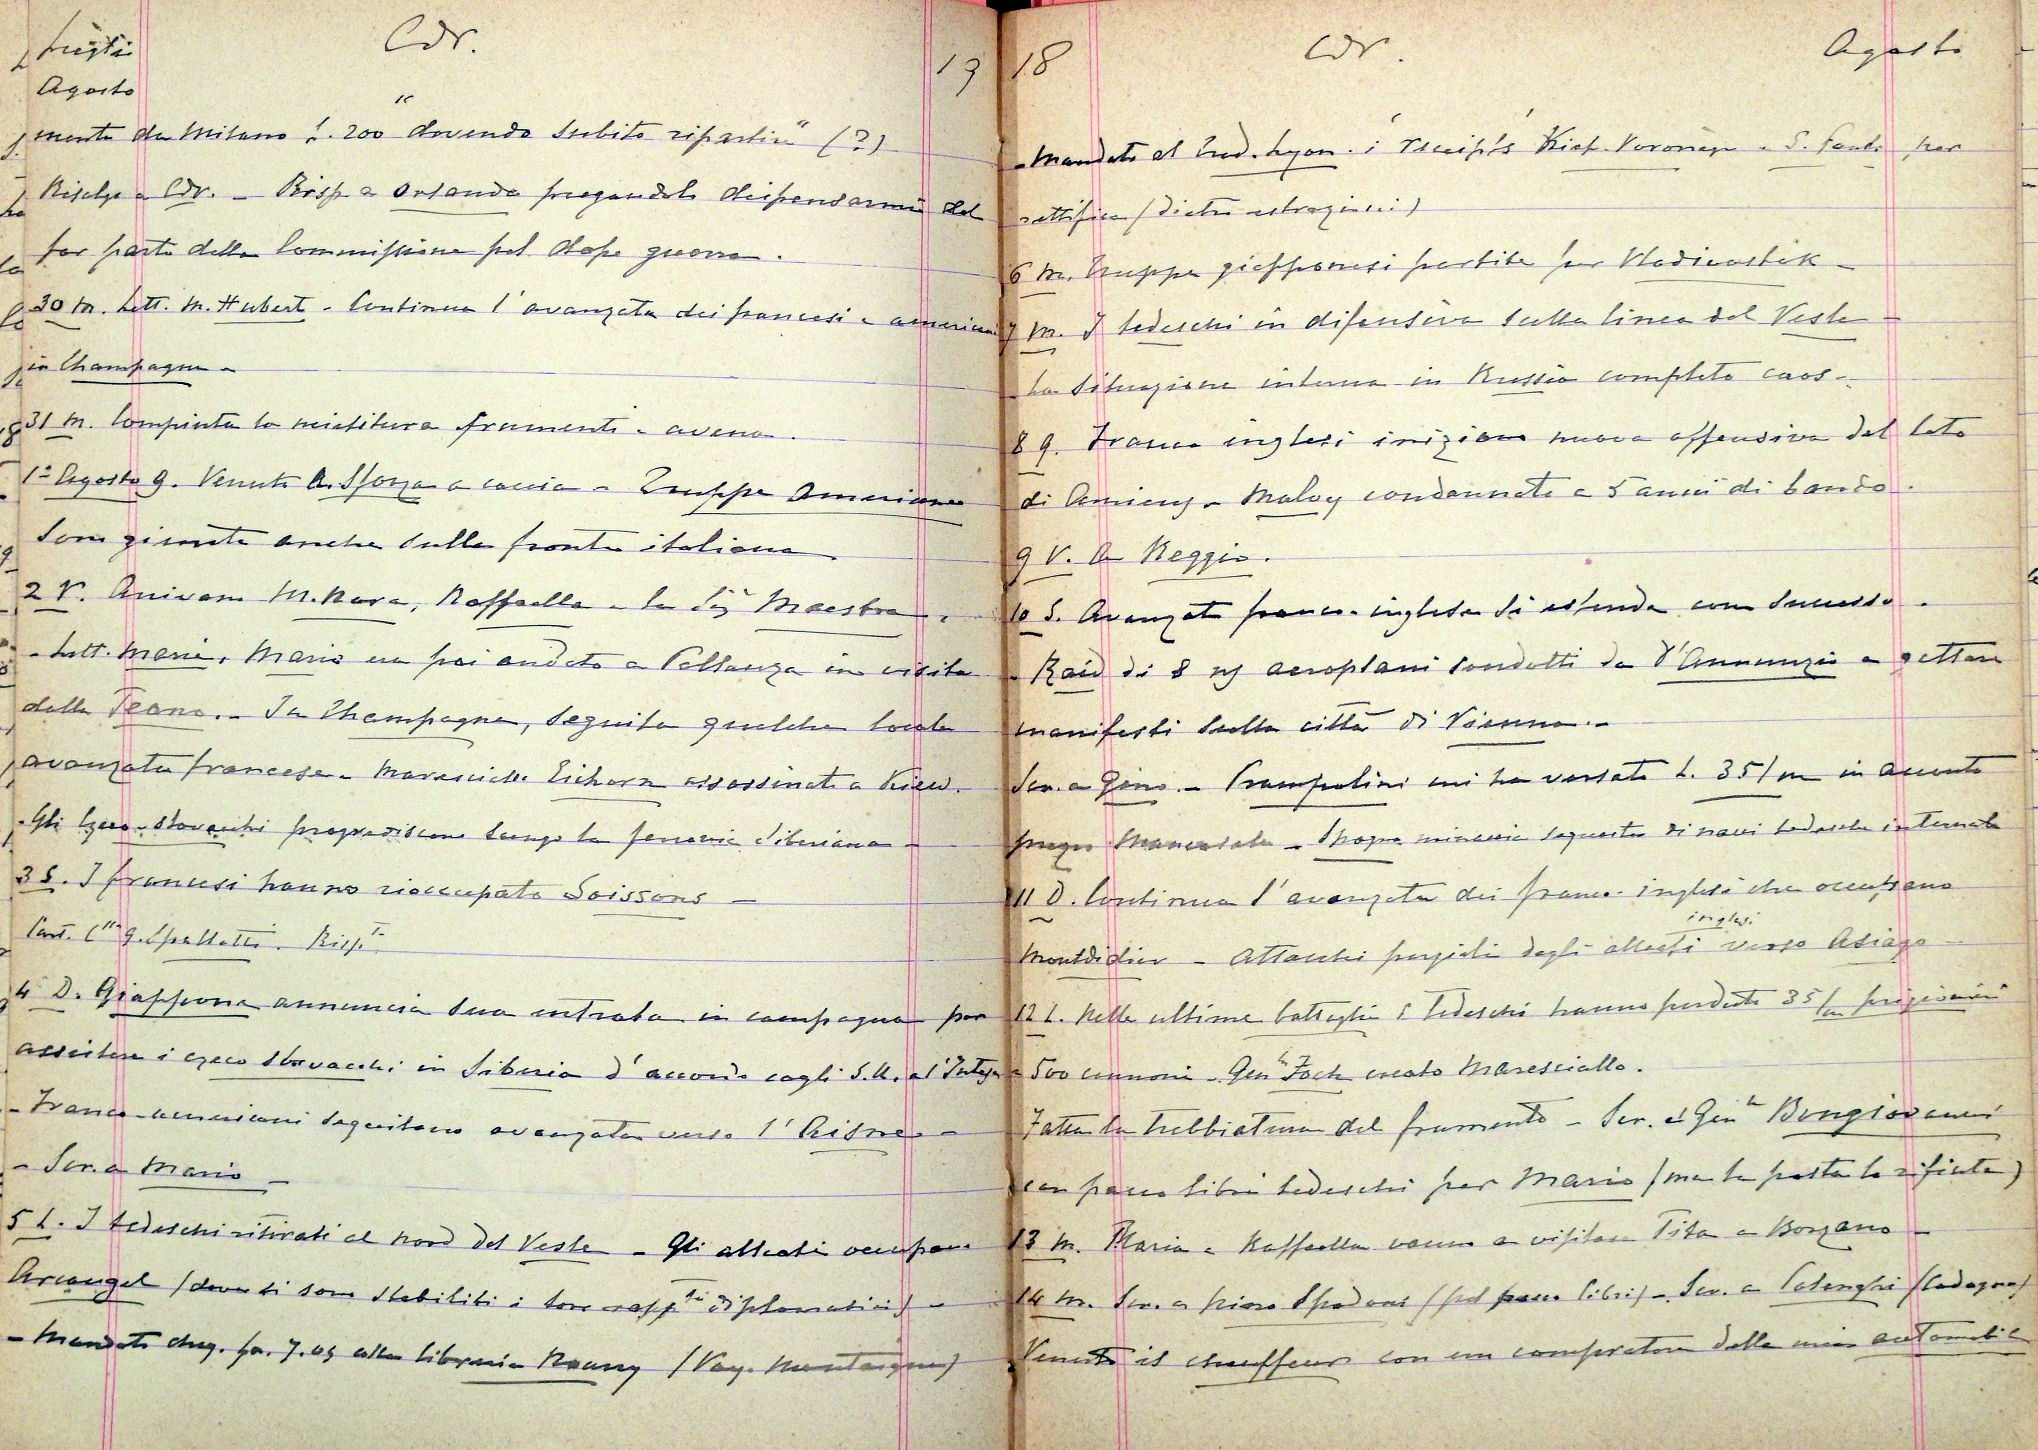 Luglio Cdr. 19
Agosto
mente da Milano £. 200 "dovendo subito ripartire" (?)
Risolge a Cdr. - Risp. a Orlando pregandolo dispensarmi dal
far parte della Commissione pel dopo guerra.
30 M. Lett. M. Hubert - Continua l'avanzata dei francesi e americani
in Champagne -
31 M. Compiuta la mietitura frumenti e avena.
1° Agosto G. Venuto A. Sforza a caccia - Truppe Americane
sono giunte anche sulla fronte italiana
2 V. Arrivano M. Nora, Raffaella e la Sig.ra Maestra.
- Lett. Mario. Mario era poi andato a Pallanza in visita
della Teano. - In Champagne, seguita qualche locale
avanzata francese - Maresciallo Eichorn assassinato a Kiew.
- Gli Czeco-slovacchi progrediscono lungo la ferrovia Siberiana -
3 S. I francesi hanno rioccupato Soissons -
Cart. C.ssa G. Spalletti. Risp.
4 D. Giappone annuncia sua entrata in campagna per
assistere i czeco slovacchi in Siberia d'accordo cogli S.U. e l'Intesa
- Franco-americani seguitano avanzata verso l'Aisne -
- Scr. a Mario -
5 L. I tedeschi ritirati al nord del Vesle - Gli alleati occupano
Arcangel (dove si sono stabiliti i loro rapp.ti diplomatici) -
- Mandato chèq. fr. 7.05 alla libreria Nouny (Voy. Montaigne)
18 Cdr. Agosto
- Mandato al Cred. Lyon. i récépissés Kief-Voronège e S. Paolo per
rettifica (dietro estrazioni)
6 M. Truppe giapponesi partite per Vladivostok -
7 M. I tedeschi in difensiva sulla linea del Vesle -
La situazione interna in Russia completo caos -
8 G. Franco inglesi iniziano nuova offensiva dal lato
di Amiens - Malvy condannato a 5 anni di bando.
9 V. A Reggio.
10 S. Avanzata franco-inglese si estende con successo.
- Raid di 8 ns aeroplani condotti da D'Annunzio a gettare
manifesti sulla città di Vienna. -
Scr. a Gino. - Prampolini mi ha versato L. 35/m in acconto
prezzo Mancasale - Spagna minaccia sequestro di navi tedesche internate
11 D. Continua l'avanzata dei franco-inglesi che occupano
inglesi
Montdidier - Attacchi parziali degli alleati verso Asiago -
12 L. Nelle ultime battaglie i tedeschi hanno perduto 35/m prigionieri
e 500 cannoni - Gen.le Foch creato Maresciallo.
Fatta la trebbiatura del frumento - Scr. al Gen.le Bongiovanni
con pacco libri tedeschi per Mario (ma la posta lo rifiuta)
13 M. Maria e Raffaella vanno a visitare Tita a Borzano -
14 M. Scr. a Piero Spadoni (pel pacco libri) - Scr. a Polenghi (Codogno)
Venuto il chauffeur con un compratore della mia automobile